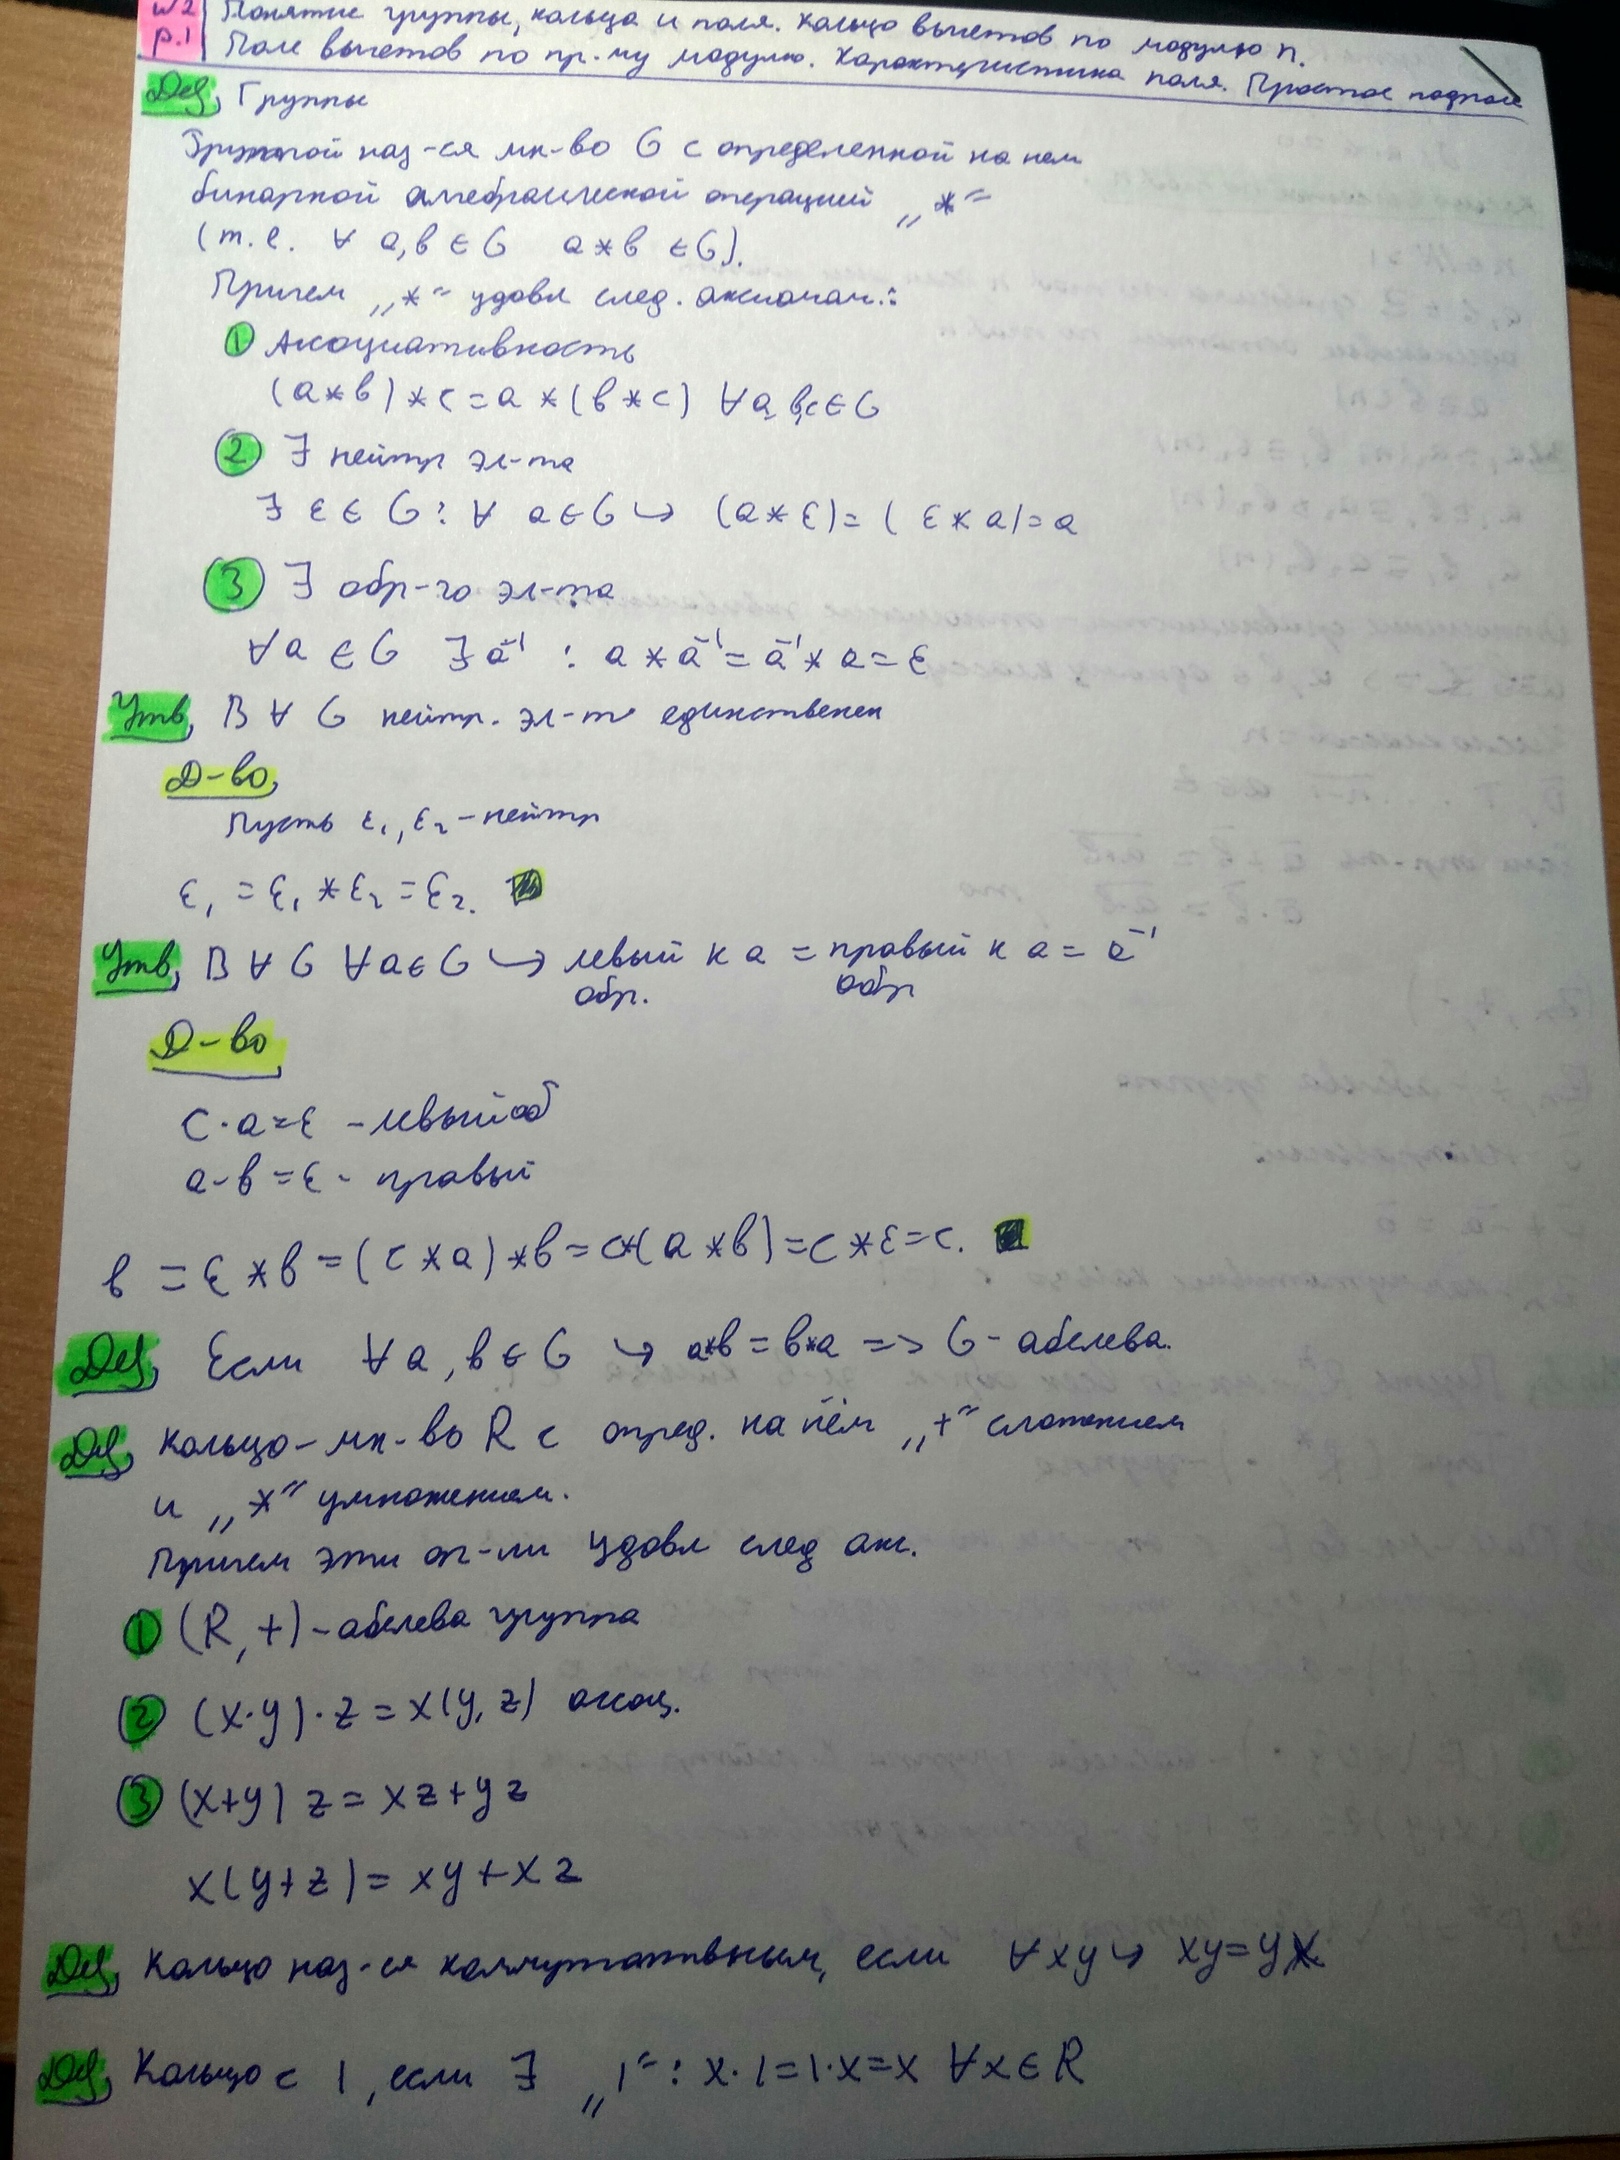 №2 Понятие группы, кольца и поля. Кольцо вычетов по модулю n.
p.1 Поле вычетов по пр.му модулю. Характеристика поля. Простое подполе
Def, Группы
Группой наз-ся мн-во G с определенной на нем
бинарной алгебраической операцией „*“
(т.е. ∀ a,b ∈ G a*b ∈ G).
Причем „*“ удовл след. аксиомам:
① Ассоциативность
(a*b)*c=a*(b*c) ∀a,b,c∈G
② ∃ нейтр эл-та
∃ ε∈G: ∀ a∈G ↪ (a*ε)=(ε*a)=a
③ ∃ обр-го эл-та
∀a∈G ∃a⁻¹ : a*a⁻¹=a⁻¹*a=ε
Утв, В ∀ G нейтр. эл-т единственен
Д-во,
Пусть ε₁,ε₂-нейтр
ε₁=ε₁*ε₂=ε₂.
Утв, В ∀ G ∀a∈G ↪ левый к a = правый к a = a⁻¹
обр. обр
Д-во
c·a=ε - левый об
a·b=ε - правый
b=ε*b=(c*a)*b=c*(a*b)=c*ε=c.
Def, Если ∀a,b∈G ↪ a*b=b*a => G-абелева.
Def, Кольцо-мн-во R с опред. на нём „+“ сложением
и „*“ умножением.
Причем эти оп-ии удовл след акс.
① (R,+)-абелева группа
② (x·y)·z=x(y,z) ассоц.
③ (x+y)z=xz+yz
x(y+z)=xy+xz
Def, Кольцо наз-ся коммутативным, если ∀xy↪ xy=yx
Def, Кольцо с 1, если ∃ „1“: x·1=1·x=x ∀x∈R